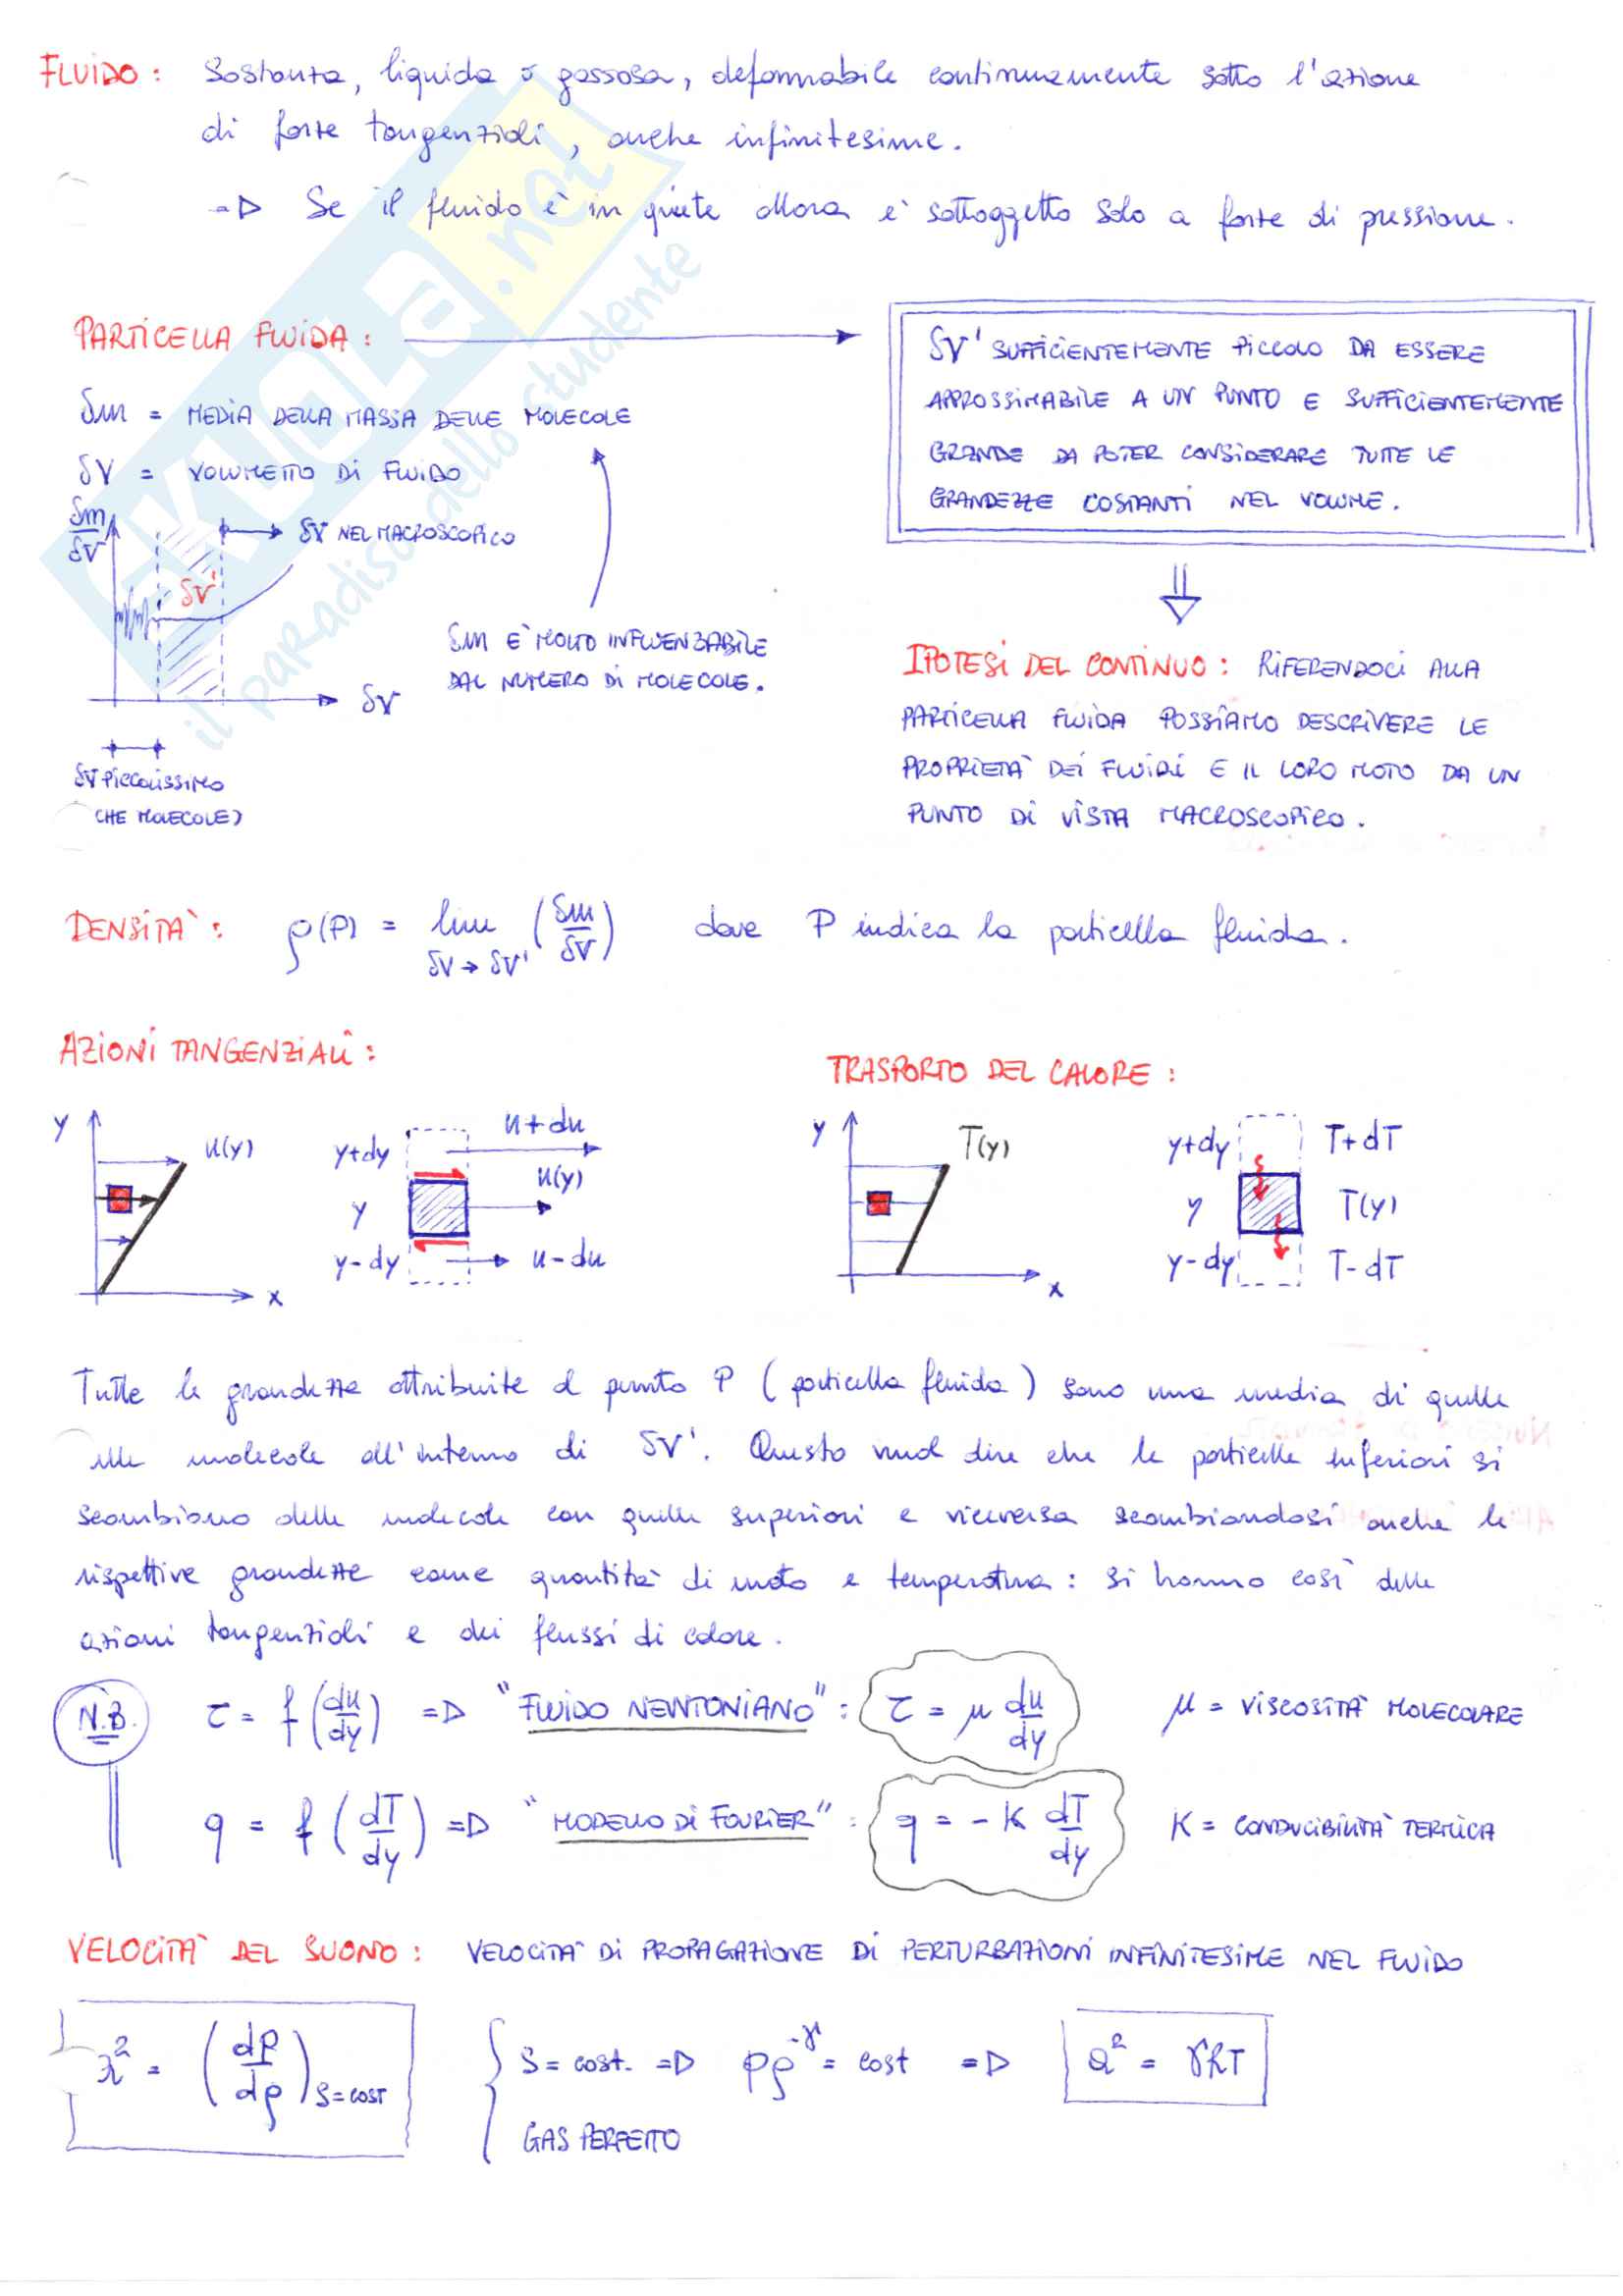 FLUIDO : Sostanza, liquida o gassosa, deformabile continuamente sotto l'azione
di forze tangenziali, anche infinitesime.
=> Se il fluido è in quiete allora è sottoggetto solo a forze di pressione.
PARTICELLA FLUIDA :
δm = MEDIA DELLA MASSA DELLE MOLECOLE
δV = VOLUMETTO DI FLUIDO
δm/δV
δV NEL MACROSCOPICO
δV'
δV
δV PICCOLISSIMO
(HE MOLECOLE)
δm È MOLTO INFLUENZABILE
DAL NUMERO DI MOLECOLE.
δV' SUFFICIENTEMENTE PICCOLO DA ESSERE
APPROSSIMABILE A UN PUNTO E SUFFICIENTEMENTE
GRANDE DA POTER CONSIDERARE TUTTE LE
GRANDEZZE COSTANTI NEL VOLUME.
IPOTESI DEL CONTINUO : RIFERENDOCI ALLA
PARTICELLA FLUIDA POSSIAMO DESCRIVERE LE
PROPRIETÀ DEI FLUIDI E IL LORO MOTO DA UN
PUNTO DI VISTA MACROSCOPICO.
DENSITÀ : ρ(P) = lim δV→δV' (δm/δV) dove P indica la particella fluida.
AZIONI TANGENZIALI :
y
u(y)
x
y+dy
y
y-dy
u+du
u(y)
u-du
TRASPORTO DEL CALORE :
y
T(y)
x
y+dy
y
y-dy
T+dT
T(y)
T-dT
Tutte le grandezze attribuite al punto P (particella fluida) sono una media di quelle
alle molecole all'interno di δV'. Questo vuol dire che le particelle inferiori si
scambiano delle molecole con quelle superiori e viceversa scambiandosi anche le
rispettive grandezze come quantità di moto e temperatura : si hanno così delle
azioni tangenziali e dei flussi di calore.
N.B. τ = f(du/dy) => "FLUIDO NEWTONIANO" : τ = μ du/dy μ = VISCOSITÀ MOLECOLARE
q = f(dT/dy) => "MODELLO DI FOURIER" : q = -K dT/dy K = CONDUCIBILITÀ TERMICA
VELOCITÀ DEL SUONO : VELOCITÀ DI PROPAGAZIONE DI PERTURBAZIONI INFINITESIME NEL FLUIDO
a² = (dp/dρ)S=COST
S = cost. => pρ^-γ = cost => a² = γRT
GAS PERFETTO
SKUOLA.net
il paradiso dello studente